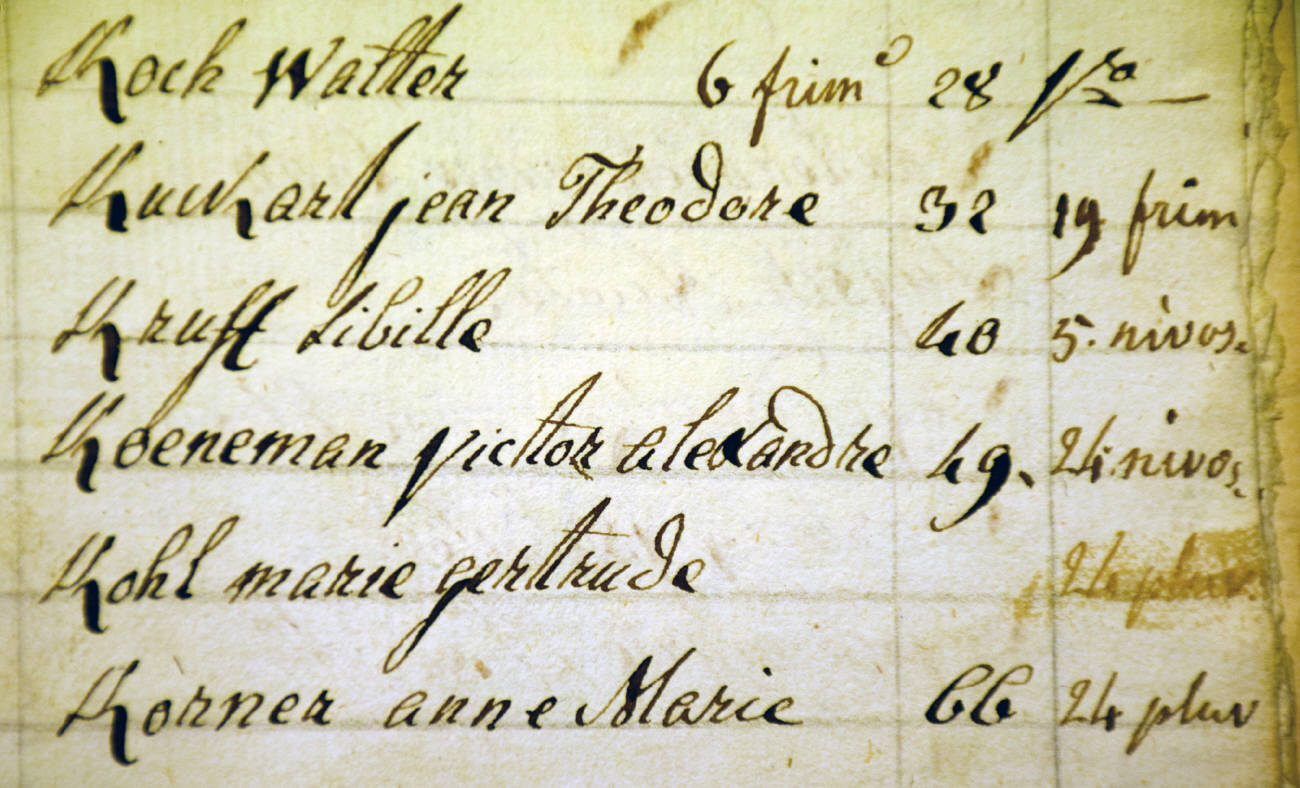 Koch Walter 6 frim° 28 Vo
Kuckart jean Theodore 32 19 frim
Kruft Sibille 40 5. nivos.
Koeneman Victor alexandre 49. 24. nivos.
Kohl marie gertrude 24 pluv.
Körner anne Marie 66 24 pluv